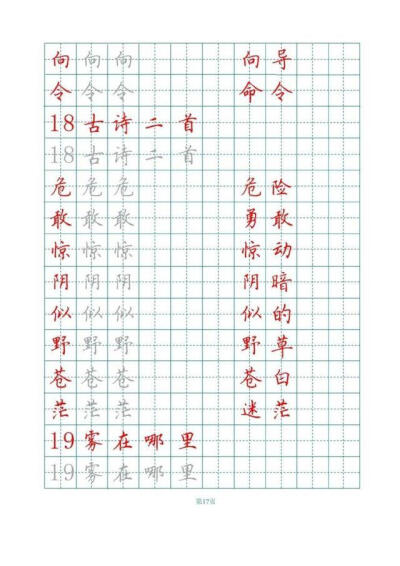 向向向 向导
令令令 命令
18古诗二首
18古诗二首
危危危 危险
敢敢敢 勇敢
惊惊惊 惊动
阴阴阴 阴暗
似似似 似的
野野野 野草
苍苍苍 苍白
茫茫茫 迷茫
19雾在哪里
19雾在哪里
第17页